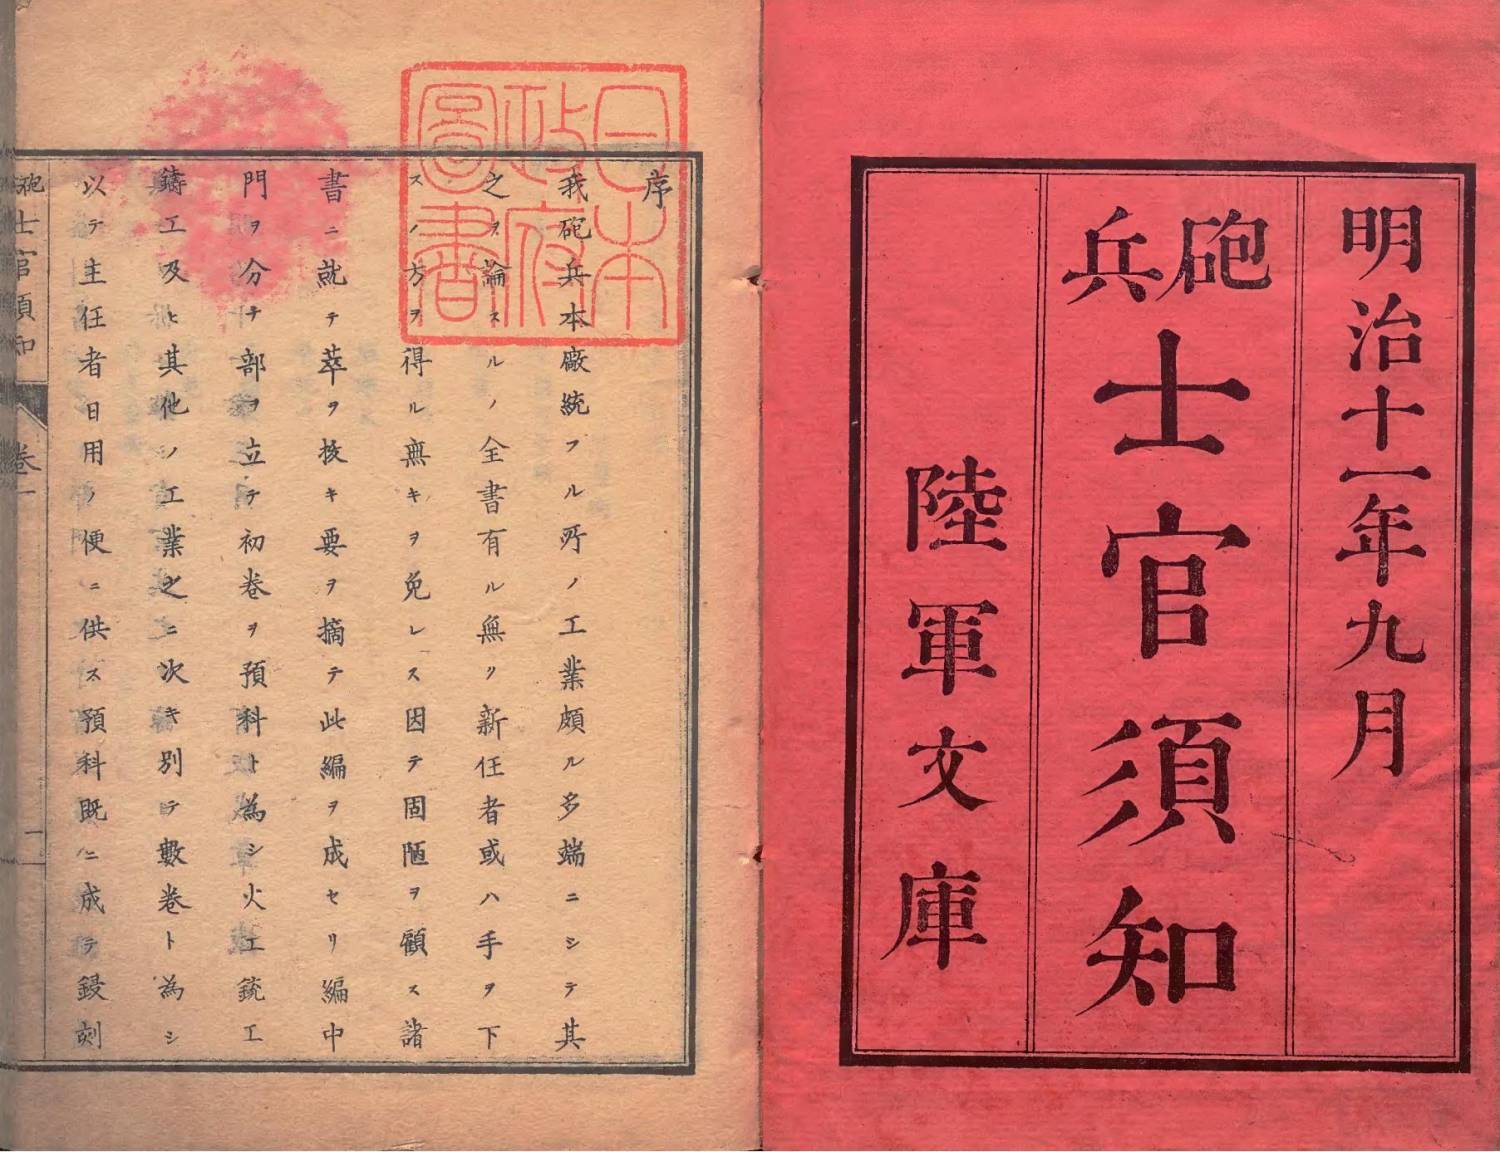 明治十一年九月
砲兵士官須知
陸軍文庫
日本
政府
圖書
序
我砲兵本廠統フル所ノ工業頗ル多端ニシテ其
之ヲ論スルノ全書有ル無リ新任者或ハ手ヲ下
スノ方ヲ得ル無キヲ免レス因テ固陋ヲ顧ス諸
書ニ就テ萃ヲ抜キ要ヲ摘テ此編ヲ成セリ編中
門ヲ分チ部ヲ立テ初巻ヲ預科ト為シ火工銃工
鑄工及ヒ其他ノ工業之ニ次キ別テ數巻ト為シ
以テ主任者日用ノ便ニ供ス預科既ニ成テ鋟刻
砲士官須知
巻一
一